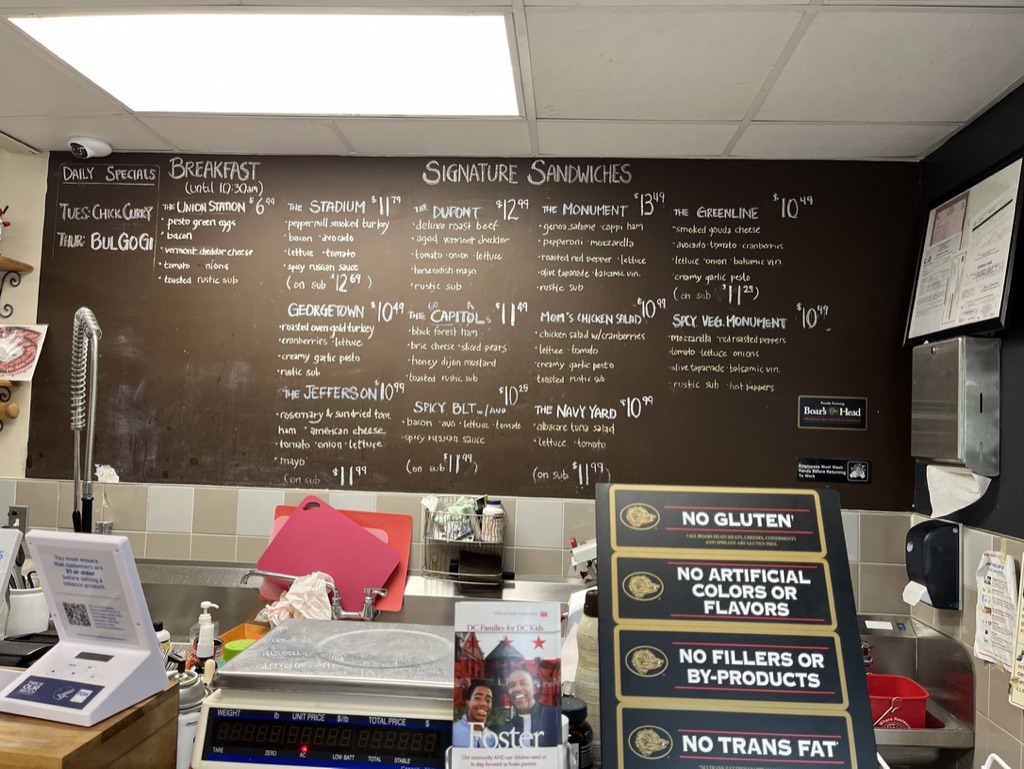 DAILY SPECIALS
TUES: CHICK CURRY
THUR: BULGOGI
BREAKFAST
(until 10:30am)
THE UNION STATION $6.99
• pesto green eggs
• bacon
• vermont cheddar cheese
• tomato • nions
• toasted rustic sub
SIGNATURE SANDWICHES
THE STADIUM $11.79
• peppermill smoked turkey
bacon • avocado
• lettuce • tomato
• spicy russian sauce
(on sub $12.69)
GEORGETOWN $10.49
• roasted oven gold turkey
cranberries • lettuce
• creamy garlic pesto
• rustic sub
THE JEFFERSON $10.99
• rosemary & sundried tom.
ham • american cheese
• tomato • onion • lettuce
• mayo
(on sub $11.99
THE DUPONT $12.99
• deluxe roast beef
• aged vermont cheddar
• tomato • onion • lettuce
horseradish mayo
• rustic sub
THE CAPITOL $11.49
• black forest ham
• brie cheese • sliced pears
• honey dijon mustard
• toasted rustic sub
SPICY BLT w/AVO $10.25
• bacon • avo • lettuce • tomato
spicy russian sauce
(on sub $11.49)
THE MONUMENT $13.49
• genoa salame • cappi ham
• pepperoni • mozzarella
• roasted red pepper • lettuce
• olive tapanade • balsamic vin.
• rustic sub
MOM'S CHICKEN SALAD $10.99
• chicken salad w/cranberries
• lettuce • tomato
• creamy garlic pesto
toasted rustic sub
THE NAVY YARD $10.99
• albacore tuna salad
• lettuce • tomato
(on sub $11.99)
THE GREENLINE $10.49
• smoked gouda cheese
• avocado • tomato • cranberries
• lettuce • onion • balsamic vin.
creamy garlic pesto
(on sub $11.25)
SPCY. VEG. MONUMENT $10.49
• mozzarella • red roasted peppers
• tomato • lettuce onions
• olive tapanade • balsamic vin.
• rustic sub • hot peppers
Boar's Head
Employees Must Wash
Hands Before Returning
To Work
You must ensure
that customers are
21 or older
before selling a
tobacco product.
WEIGHT lb UNIT PRICE $/lb TOTAL PRICE $
TARE ZERO AC LOW BATT TOTAL STABLE
DC Families for DC Kids
Foster
Our community AND our children need us
to step forward as foster parents.
NO GLUTEN†
†ALL BOARS HEAD MEATS, CHEESES, CONDIMENTS
AND SPREADS ARE GLUTEN FREE.
NO ARTIFICIAL
COLORS OR
FLAVORS
NO FILLERS OR
BY-PRODUCTS
NO TRANS FAT*